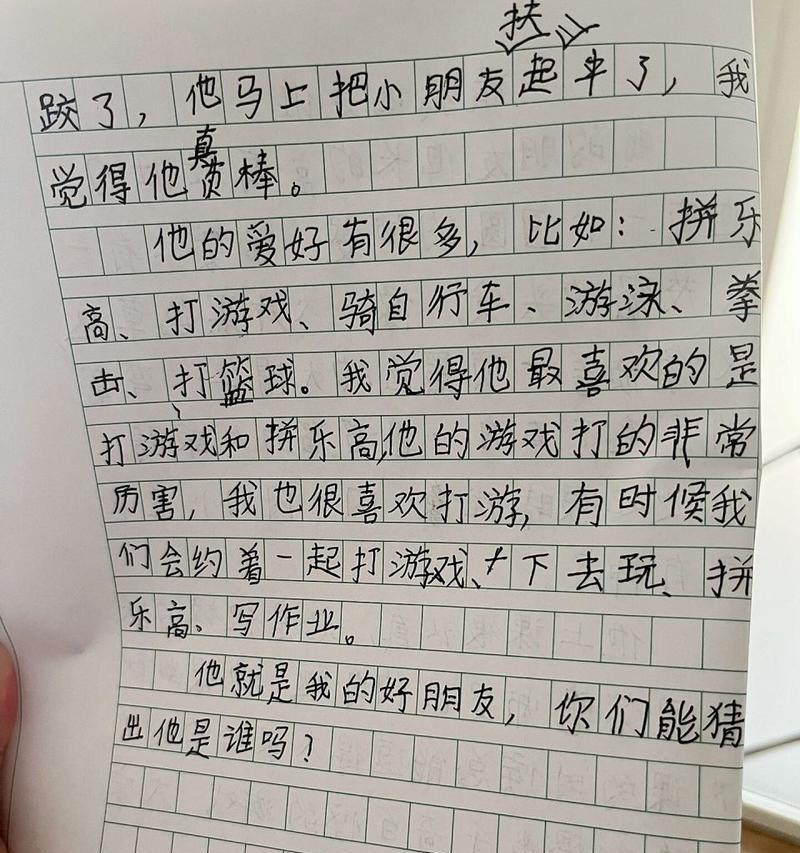 扶
跤了，他马上把小朋友起来了，我
真
觉得他贡棒。
他的爱好有很多，比如：拼乐
高、打游戏、骑自行车、游泳、拳
击、打篮球。我觉得他最喜欢的是
打游戏和拼乐高，他的游戏打的非常
厉害，我也很喜欢打游，有时候我
们会约着一起打游戏、下去玩、拼
乐高、写作业。
他就是我的好朋友，你们能猜
出他是谁吗？